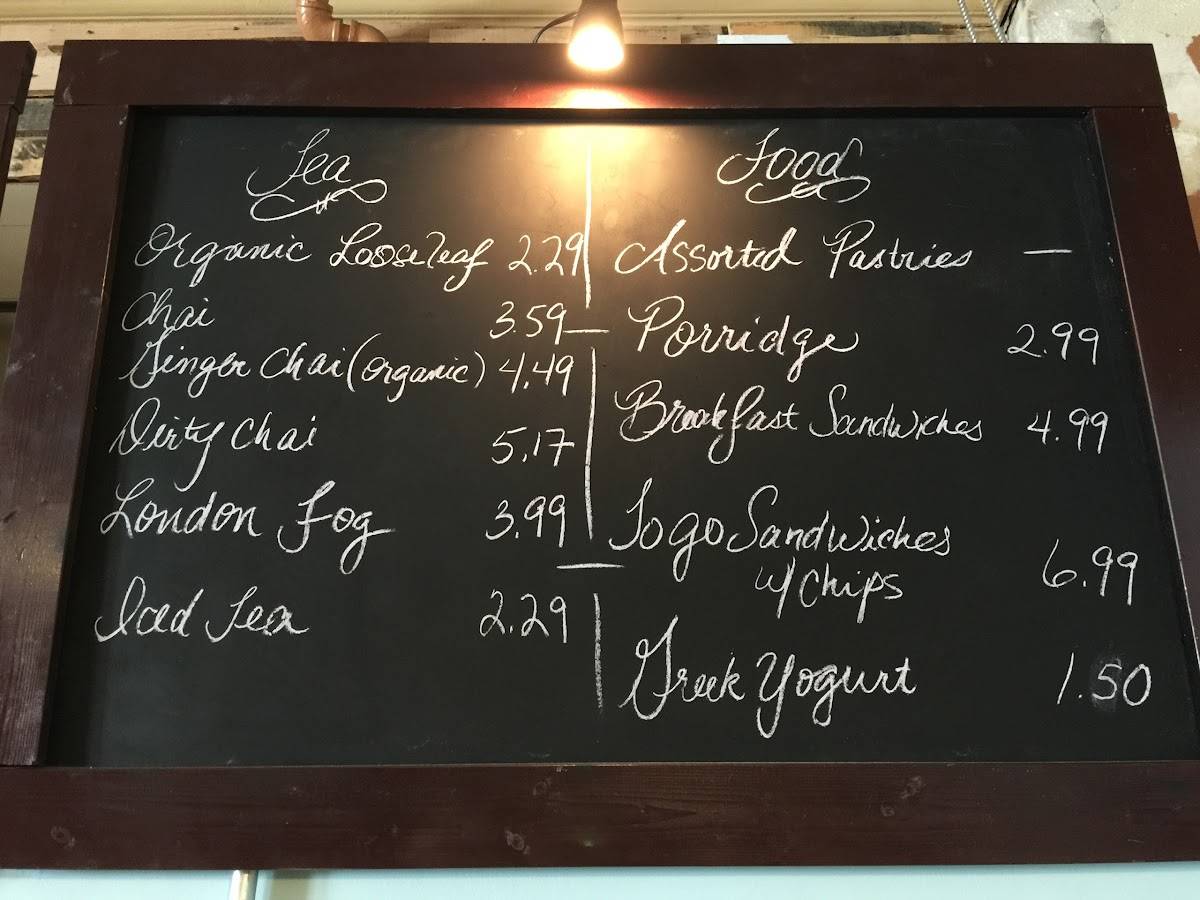 Tea
Organic Looseleaf 2.29
Chai 3.59
Ginger Chai (organic) 4.49
Dirty Chai 5.17
London Fog 3.99
Iced Tea 2.29
Food
Assorted Pastries —
Porridge 2.99
Breakfast Sandwiches 4.99
Togo Sandwiches
w/ Chips 6.99
Greek Yogurt 1.50